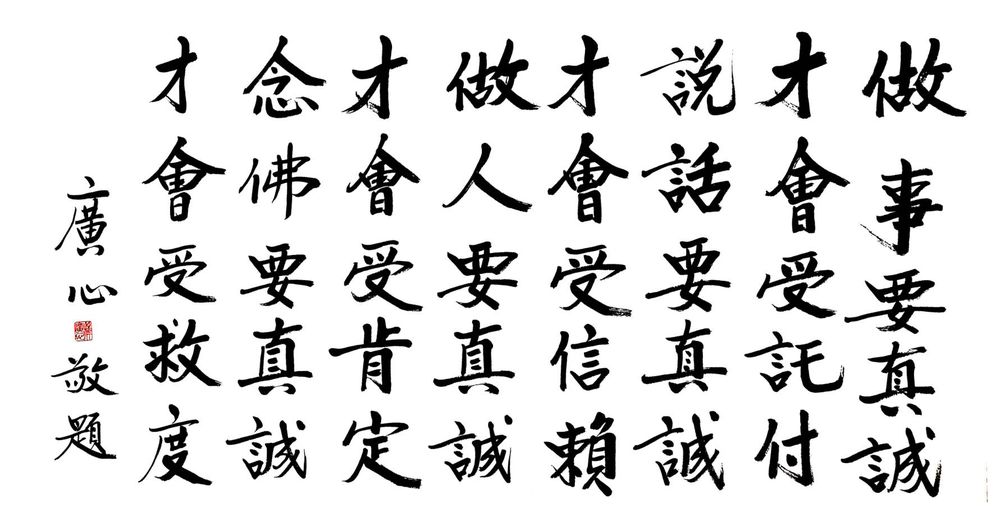 做事要真誠
才會受託付
説話要真誠
才會受信賴
做人要真誠
才會受肯定
念佛要真誠
才會受救度
廣心敬題